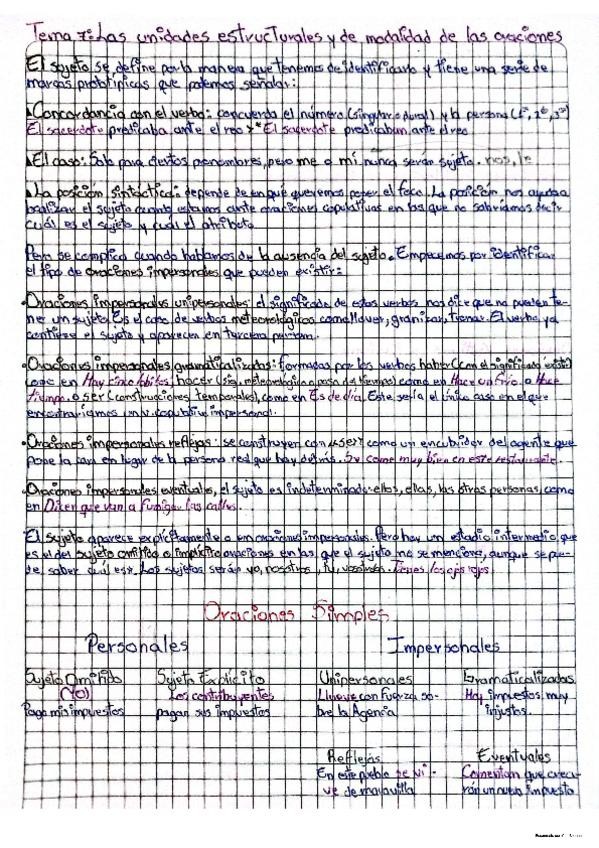 Tema 7: Las unidades estructurales y de modalidad de las oraciones
El sujeto se define por la manera que tenemos de identificarlo y tiene una serie de
marcas prototípicas que podemos señalar:
Concordancia con el verbo: concuerda el número (singular o plural) y la persona (1ª, 2ª, 3ª)
El sacerdote predicaba ante el reo > *El sacerdote predicaban ante el reo
El caso: Solo para ciertos pronombres, pero me o mí nunca serán sujeto. nos, le
La posición sintáctica: depende de en qué queremos poner el foco. La posición nos ayuda a
localizar el sujeto cuando estamos ante oraciones copulativas en las que no sabríamos decir
cuál es el sujeto y cuál el atributo.
Pero se complica cuando hablamos de la ausencia del sujeto. Empecemos por identificar
el tipo de oraciones impersonales que pueden existir:
Oraciones impersonales unipersonales: el significado de estos verbos nos dice que no pueden te-
ner un sujeto. Es el caso de verbos meteorológicos como llover, granizar, tronar. El verbo ya
contiene el sujeto y aparecen en tercera persona.
Oraciones impersonales gramaticalizadas: formadas por los verbos haber (con el significado existir)
como en Hay cinco hábitos, hacer (sig. meteorológico o paso del tiempo) como en Hace un frío o Hace
tiempo o ser (construcciones temporales), como en Es de día. Este sería el único caso en el que
encontraríamos un v. copulativo impersonal.
Oraciones impersonales reflejas: se construyen con «se» como un encubridor del agente que
pone la cara en lugar de la persona real que hay detrás. Se come muy bien en este restaurante.
Oraciones impersonales eventuales, el sujeto es indeterminado: ellos, ellas, las otras personas, como
en Dicen que van a fumigar las calles.
El sujeto aparece explícitamente o en oraciones impersonales. Pero hay un estadio intermedio, que
es el del sujeto omitido o implícito: oraciones en las que el sujeto no se menciona, aunque se pue-
de saber cuál es. Los sujetos serán yo, nosotros, tú, vosotros. Tienes los ojos rojos.
Oraciones Simples
Personales Impersonales
Sujeto Omitido Sujeto Explícito Unipersonales Gramaticalizadas
(Yo) Los contribuyentes Llueve con fuerza so- Hay impuestos muy
Pago mis impuestos pagan sus impuestos bre la Agencia injustos.
Reflejas Eventuales
En este pueblo se vi- Comentan que crea-
ve de maravilla rán un nuevo impuesto